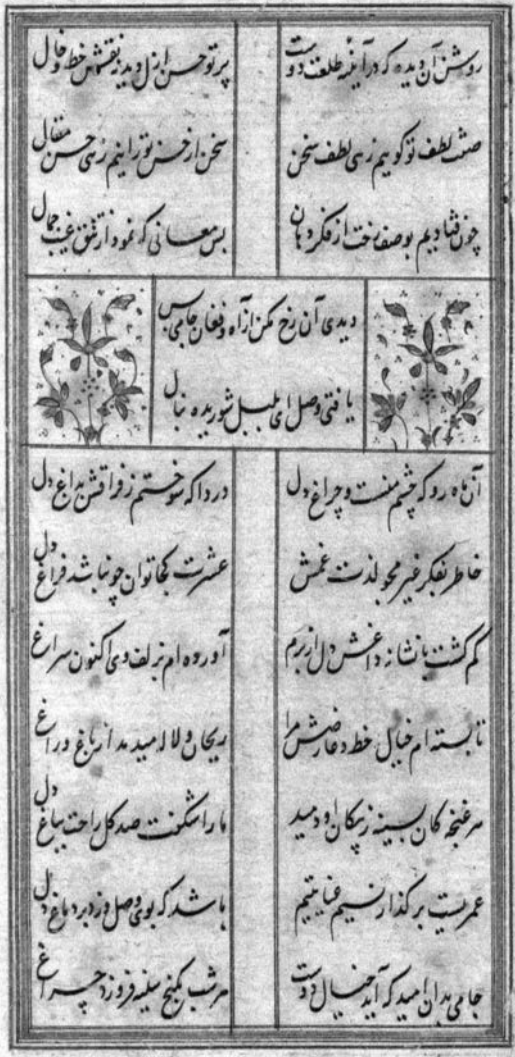 روشن آن دیده که در آینهٔ طلعت دوست
پرتو حسن ازل دید نه نقش خط و خال
صفت لطف تو گویم زهی لطف سخن
سخن از حسن تو رانیم زهی حسن مقال
چون فتادیم بوصف رخت از فکر دهان
بس معانی که نمود از تتق غیب جمال
دیدی آن رخ مکن از آه و فغان جامی بس
یافتی وصل ای بلبل شوریده منال
آن ماه رو که چشم منست و چراغ دل
دردا که سوختم ز فراقش بداغ دل
خاطر بفکر غیر محو لذت غمش
عشرت کجا توان چو نباشد فراغ دل
گم گشت با نشانهٔ داغش دل از برم
آورده‌ام بزلف وی اکنون سراغ دل
تا بسته‌ام خیال خط و عارضش مرا
ریحان و لاله میدمد از باغ و راغ دل
هر غنچه کان بسینه ز پیکان او دمید
ما را شکفت صد گل راحت بباغ دل
عمریست بر گذار نسیم عنایتیم
باشد که بوی وصل وزد بر دماغ دل
جامی بدان امید که آید خیال دوست
هر شب بکنج سینه فروزد چراغ دل